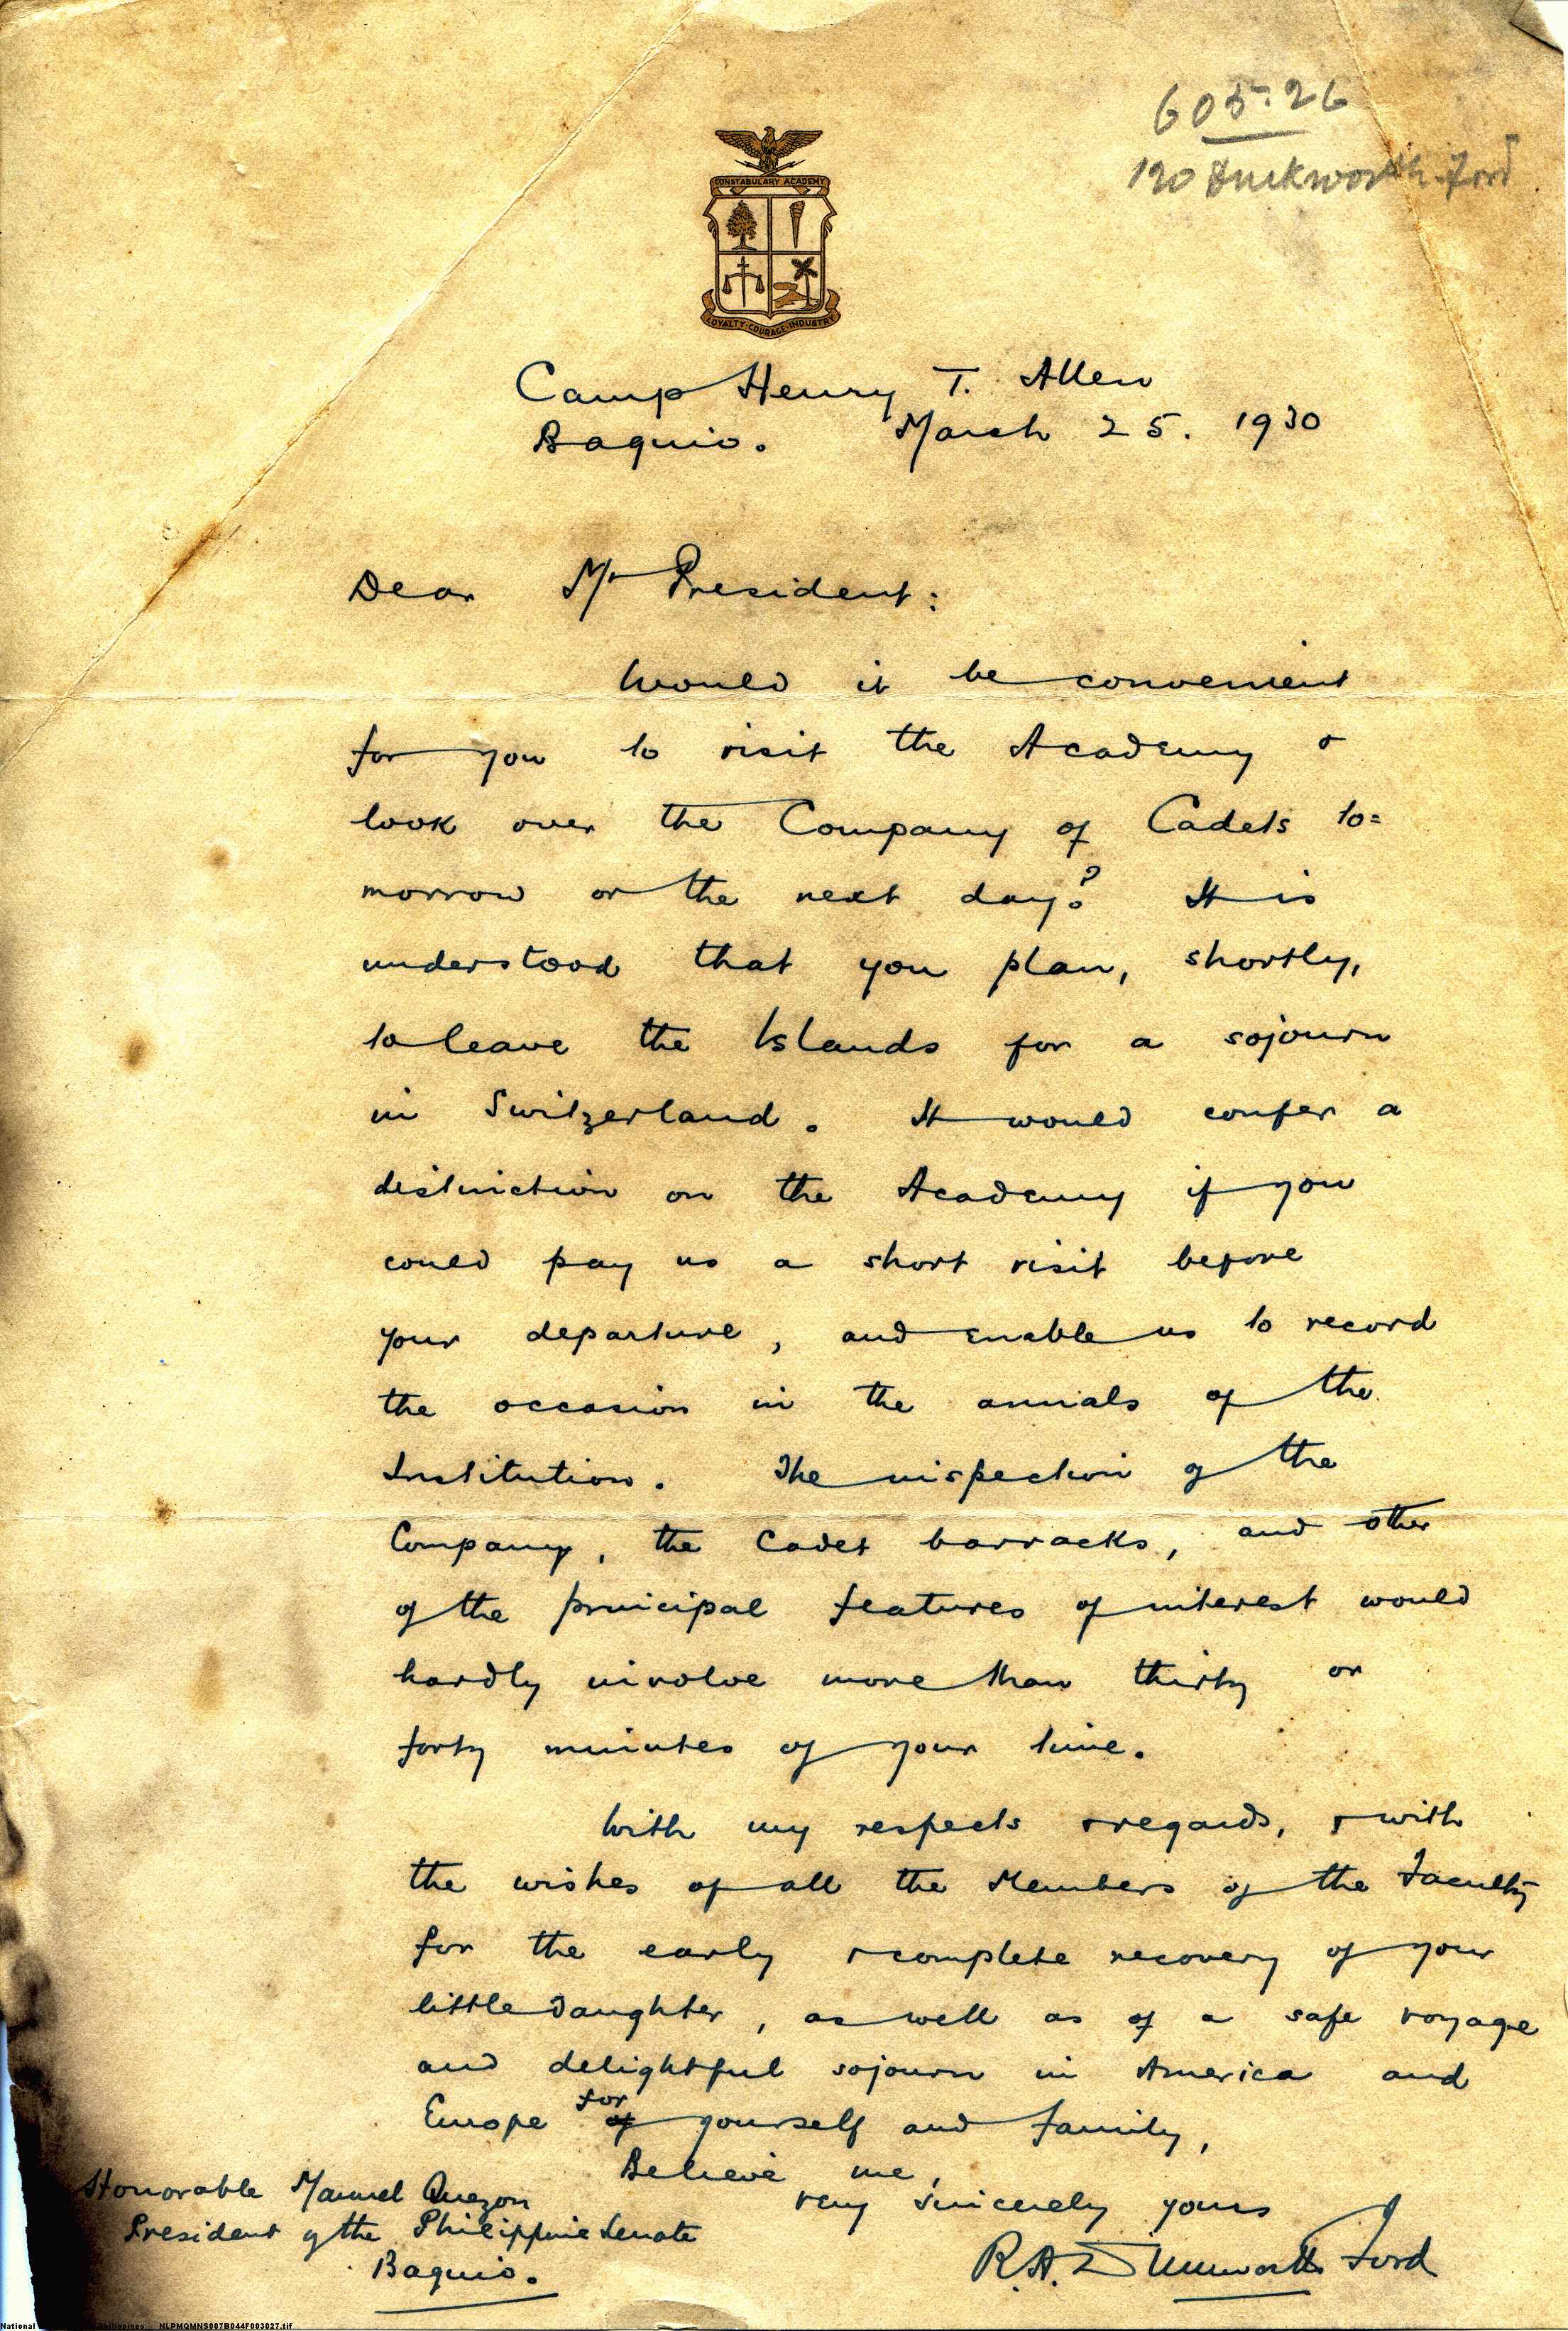 605.26
120 Duckworth-Ford
CONSTABULARY ACADEMY
LOYALTY·COURAGE·INDUSTRY
Camp Henry T. Allen
Baguio. March 25. 1930
Dear Mr President:
Would it be convenient
for you to visit the Academy &
look over the Company of Cadets to=
morrow or the next day? It is
understood that you plan, shortly,
to leave the Islands for a sojourn
in Switzerland. It would confer a
distinction on the Academy if you
could pay us a short visit before
your departure, and enable us to record
the occasion in the annals of the
Institution. The inspection of the
Company, the Cadet barracks, and other
of the principal features of interest would
hardly involve more than thirty or
forty minutes of your time.
With my respects & regards, & with
the wishes of all the Members of the Faculty
for the early & complete recovery of your
little daughter, as well as of a safe voyage
and delightful sojourn in America and
Europe for of yourself and family,
Believe me,
very sincerely yours
R.A. Duckworth Ford
Honorable Manuel Quezon
President of the Philippine Senate
Baguio.
National Philippines NLPMQMNS007B044F003027.tif